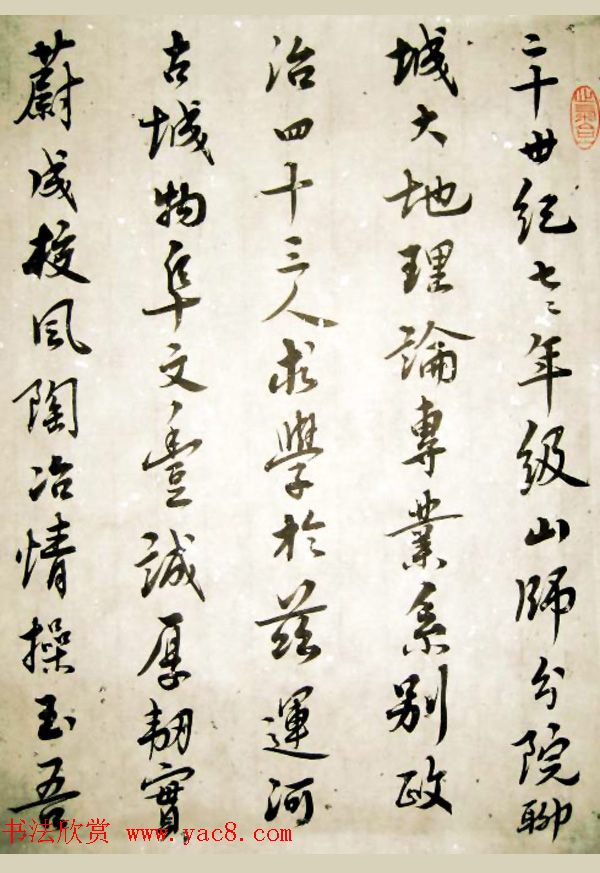 二十世紀七〻年級山師分院聊
城大地理論專業系別政
治四十三人求學於兹運河
古城物阜文豐誠厚韌實
蔚成校風陶冶情操玉吾
书法欣赏 www.yac8.com